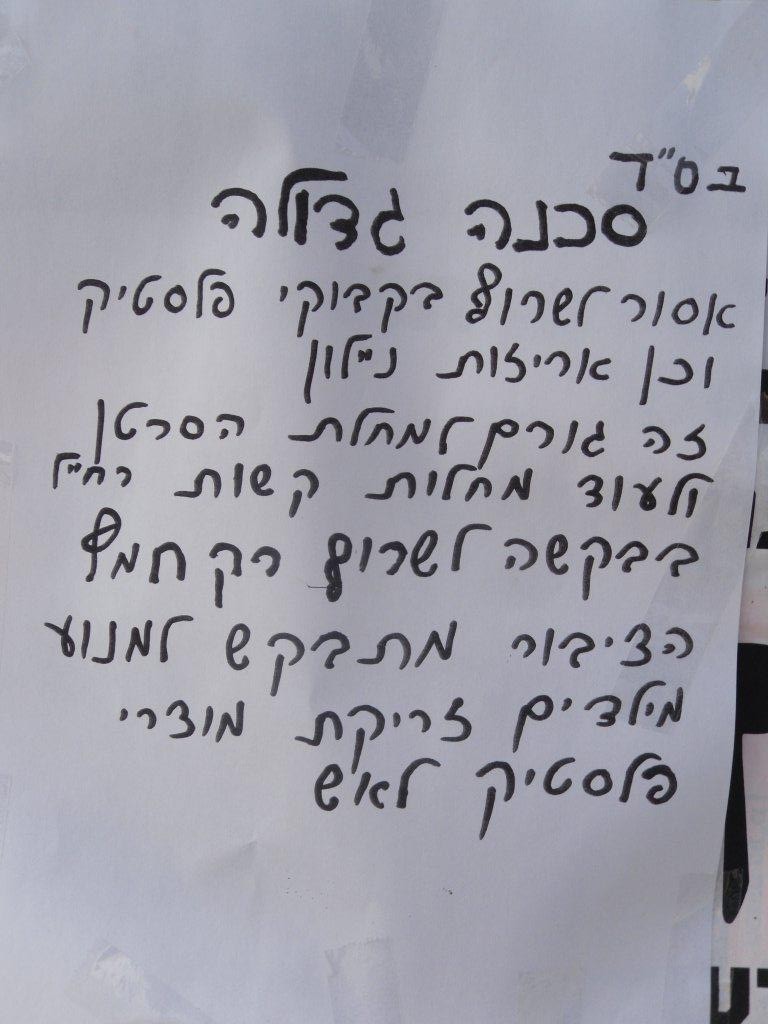 בס"ד
סכנה גדולה
אסור לשרוף בקבוקי פלסטיק
וכן אריזות ניילון
זה גורם למחלת הסרטן
ולעוד מחלות קשות רח"ל
בבקשה לשרוף רק חמץ
הציבור מתבקש למנוע
מילדים זריקת מוצרי
פלסטיק לאש